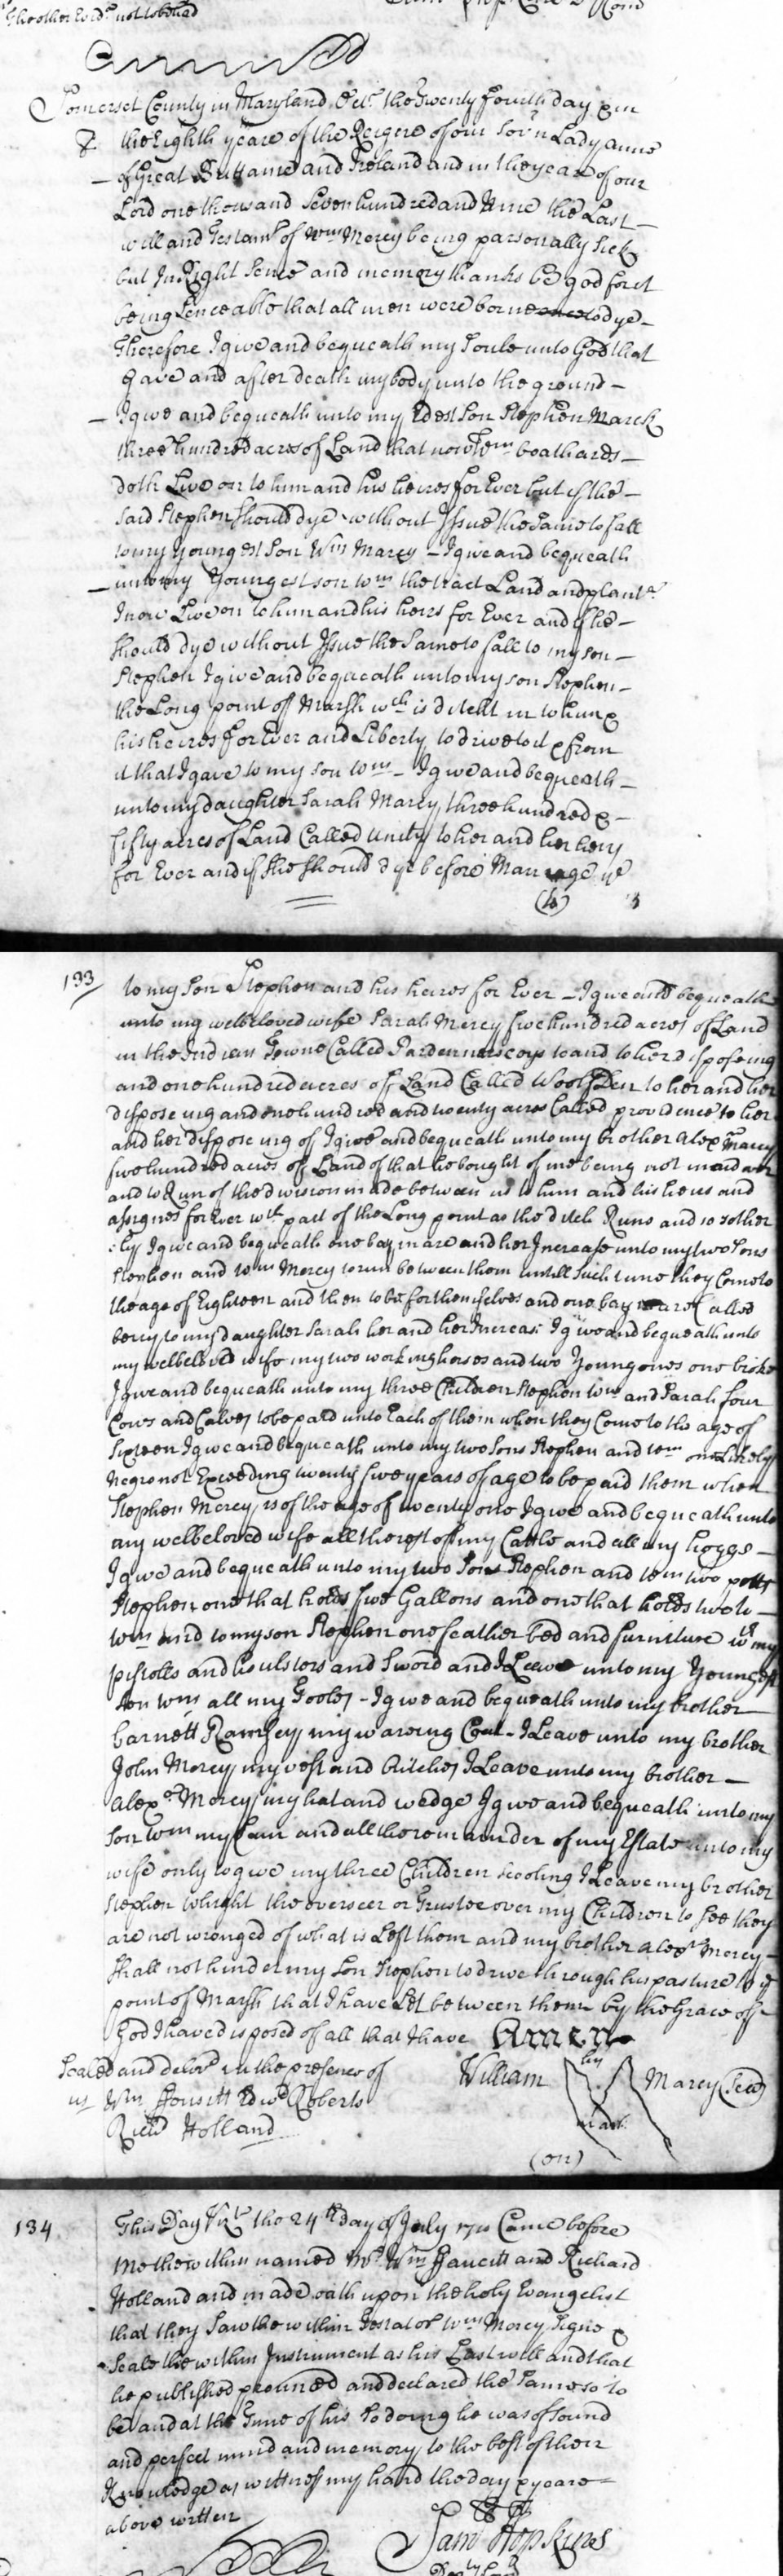 the other Evid^s not to be had
Somerset County in Maryland Oct^r the Twenty fourth day & in
the Eighth yeare of the Reigne of our Sov^rn Lady Anne
of Great Brittaine and Ireland and in the year of our
Lord one thousand Seven hundred and Nine the Last
will and Testam^t of W^m Mercy being parsonally Sick
but In Right Sence and memory thanks be god for it
being Senceable that all men were borne to dye
Therefore I give and bequeath my Soule unto God that
gave and after death my body unto the ground
I give and bequeath unto my Eldest Son Stephen March
three hundred acres of Land that now W^m
doth Live on to him and his heires for Ever but if the
Said Stephen Should dye without Issue the Same to fall
to my Youngest Son W^m Marcy I give and bequeath
unto my Youngest son W^m the tract Land and plant^a
I now Live on to him and his heirs for Ever and if he
Should dye without Issue the Same to fall to my son
Stephen I give and bequeath unto my son Stephen
the Long point off Marsh w^ch is ditcht in to him &
his heires for Ever and Liberty to drive to it & from
it that I gave to my son W^m I give and bequeath
unto my daughter Sarah Marcy three hundred &
fifty acres of Land Called Unity to her and her heirs
for Ever and if She Should dye before Marriage y^e
133
to my Son Stephen and his heires for Ever I give and bequeath
unto my welbeloved wife Sarah Mercy five hundred acres of Land
in the Indian Towne Called to and to her disposeing
and one hundred acres off Land Called Woolf Den to her and her
disposeing and one hundred and twenty acres Called providence to her
and her disposeing of I give and bequeath unto my brother Alex^r Marcy
five hundred acres of Land of that he bought of me being not made over
and to Run of the division made between us to him and his heirs and
assignes for Ever w^th part of the Long point as the ditch Runs and
I give and bequeath one bay mare and her Increase unto my two Sons
Stephen and W^m Mercy to run between them untill Such time they Come to
the age of Eighteen and then to be for themselves and one bay mare Called
berry to my Daughter Sarah her and her Increas I give and bequeath unto
my welbeloved wife my two working horses and two Young ones one broke
I give and bequeath unto my three Children Stephen W^m and Sarah four
Cows and Calves to be paid unto Each of them when they Come to the age of
Sixteen I give and bequeath unto my two Sons Stephen and W^m one Likely
Negro not Exceeding twenty five years of age to be paid them when
Stephen Mercy is of the age of twenty one I give and bequeath unto
my welbeloved wife all the rest off my Cattle and all my hoggs
I give and bequeath unto my two Sons Stephen and W^m two potts
Stephen one that holds five Gallons and one that holds two to
W^m and to my son Stephen one feather bed and furniture w^th my
pistolls and houlsters and Sword and I Leeve unto my Youngest
Son W^m all my Tooles I give and bequeath unto my brother
Barnett Ramsey my waring Coat I Leave unto my brother
John Mercy my vest and britches I Leave unto my brother
Alex^r Mercy my hat and wedge I give and bequeath unto my
Son W^m my and all the remainder of my Estate unto my
wife only to give my three Children Scooling I Leave my brother
Stephen Whight the overseer or Trustee over my Children to See they
are not wronged of what is Left them and my brother Alex^r Mercy
Shall not hinder my Son Stephen to drive through his pasture to y^e
point of Marsh that I have Let between them by the Grace off
God I have disposed of all that I have Amen
Sealed and deliv^d in the presence of
us W^m Edw^d Roberts
Rich^d Holland
William his mark Marcy (Seal)
(on)
134
This Day Viz^t the 24^th day of July 1710 Came before
me the within named M^r W^m Faucitt and Richard
Holland and made oath upon the holy Evangelist
that they Saw the within Testator W^m Mercy Signe &
Seale the within Instrument as his Last will and that
he published pronunced and declared the Same so to
be and at the Time of his So doing he was of Sound
and perfect mind and memory to the best of their
Knowledge as wittness my hand the day & yeare
above written
Sam Hopkins